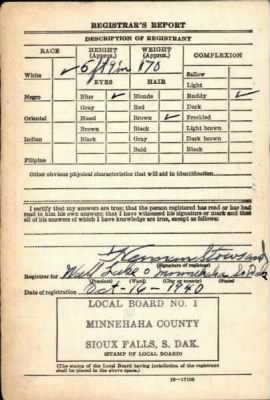 REGISTRAR'S REPORT
DESCRIPTION OF REGISTRANT
RACE HEIGHT (Approx.) WEIGHT (Approx.) COMPLEXION
White ✓ 170 Sallow
EYES HAIR Light
Negro Blue ✓ Blonde Ruddy ✓
Gray Red Dark
Oriental Hazel Brown ✓ Freckled
Brown Black Light brown
Indian Black Gray Dark brown
Bald Black
Filipino
Other obvious physical characteristics that will aid in identification
I certify that my answers are true; that the person registered has read or has had
read to him his own answers; that I have witnessed his signature or mark and that
all of his answers of which I have knowledge are true, except as follows:
(Signature of registrar)
Registrar for Wall Lake Minnehaha So Dak
(Precinct) (Ward) (City or county) (State)
Date of registration Oct - 16 - 1940
LOCAL BOARD NO. 1
MINNEHAHA COUNTY
SIOUX FALLS, S. DAK.
(STAMP OF LOCAL BOARD)
(The stamp of the Local Board having jurisdiction of the registrant
shall be placed in the above space.)
16—17105